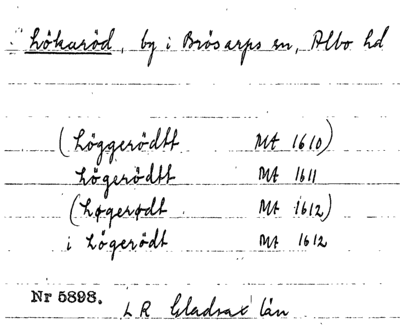 Lökaröd, by i Brösarps sn, Albo hd
(Löggerödtt Mt 1610)
Högerödtt Mt 1611
(Høgerødt Mt 1612)
i Lögerödt Mt 1612
Nr 5898.
LR Gladsax län